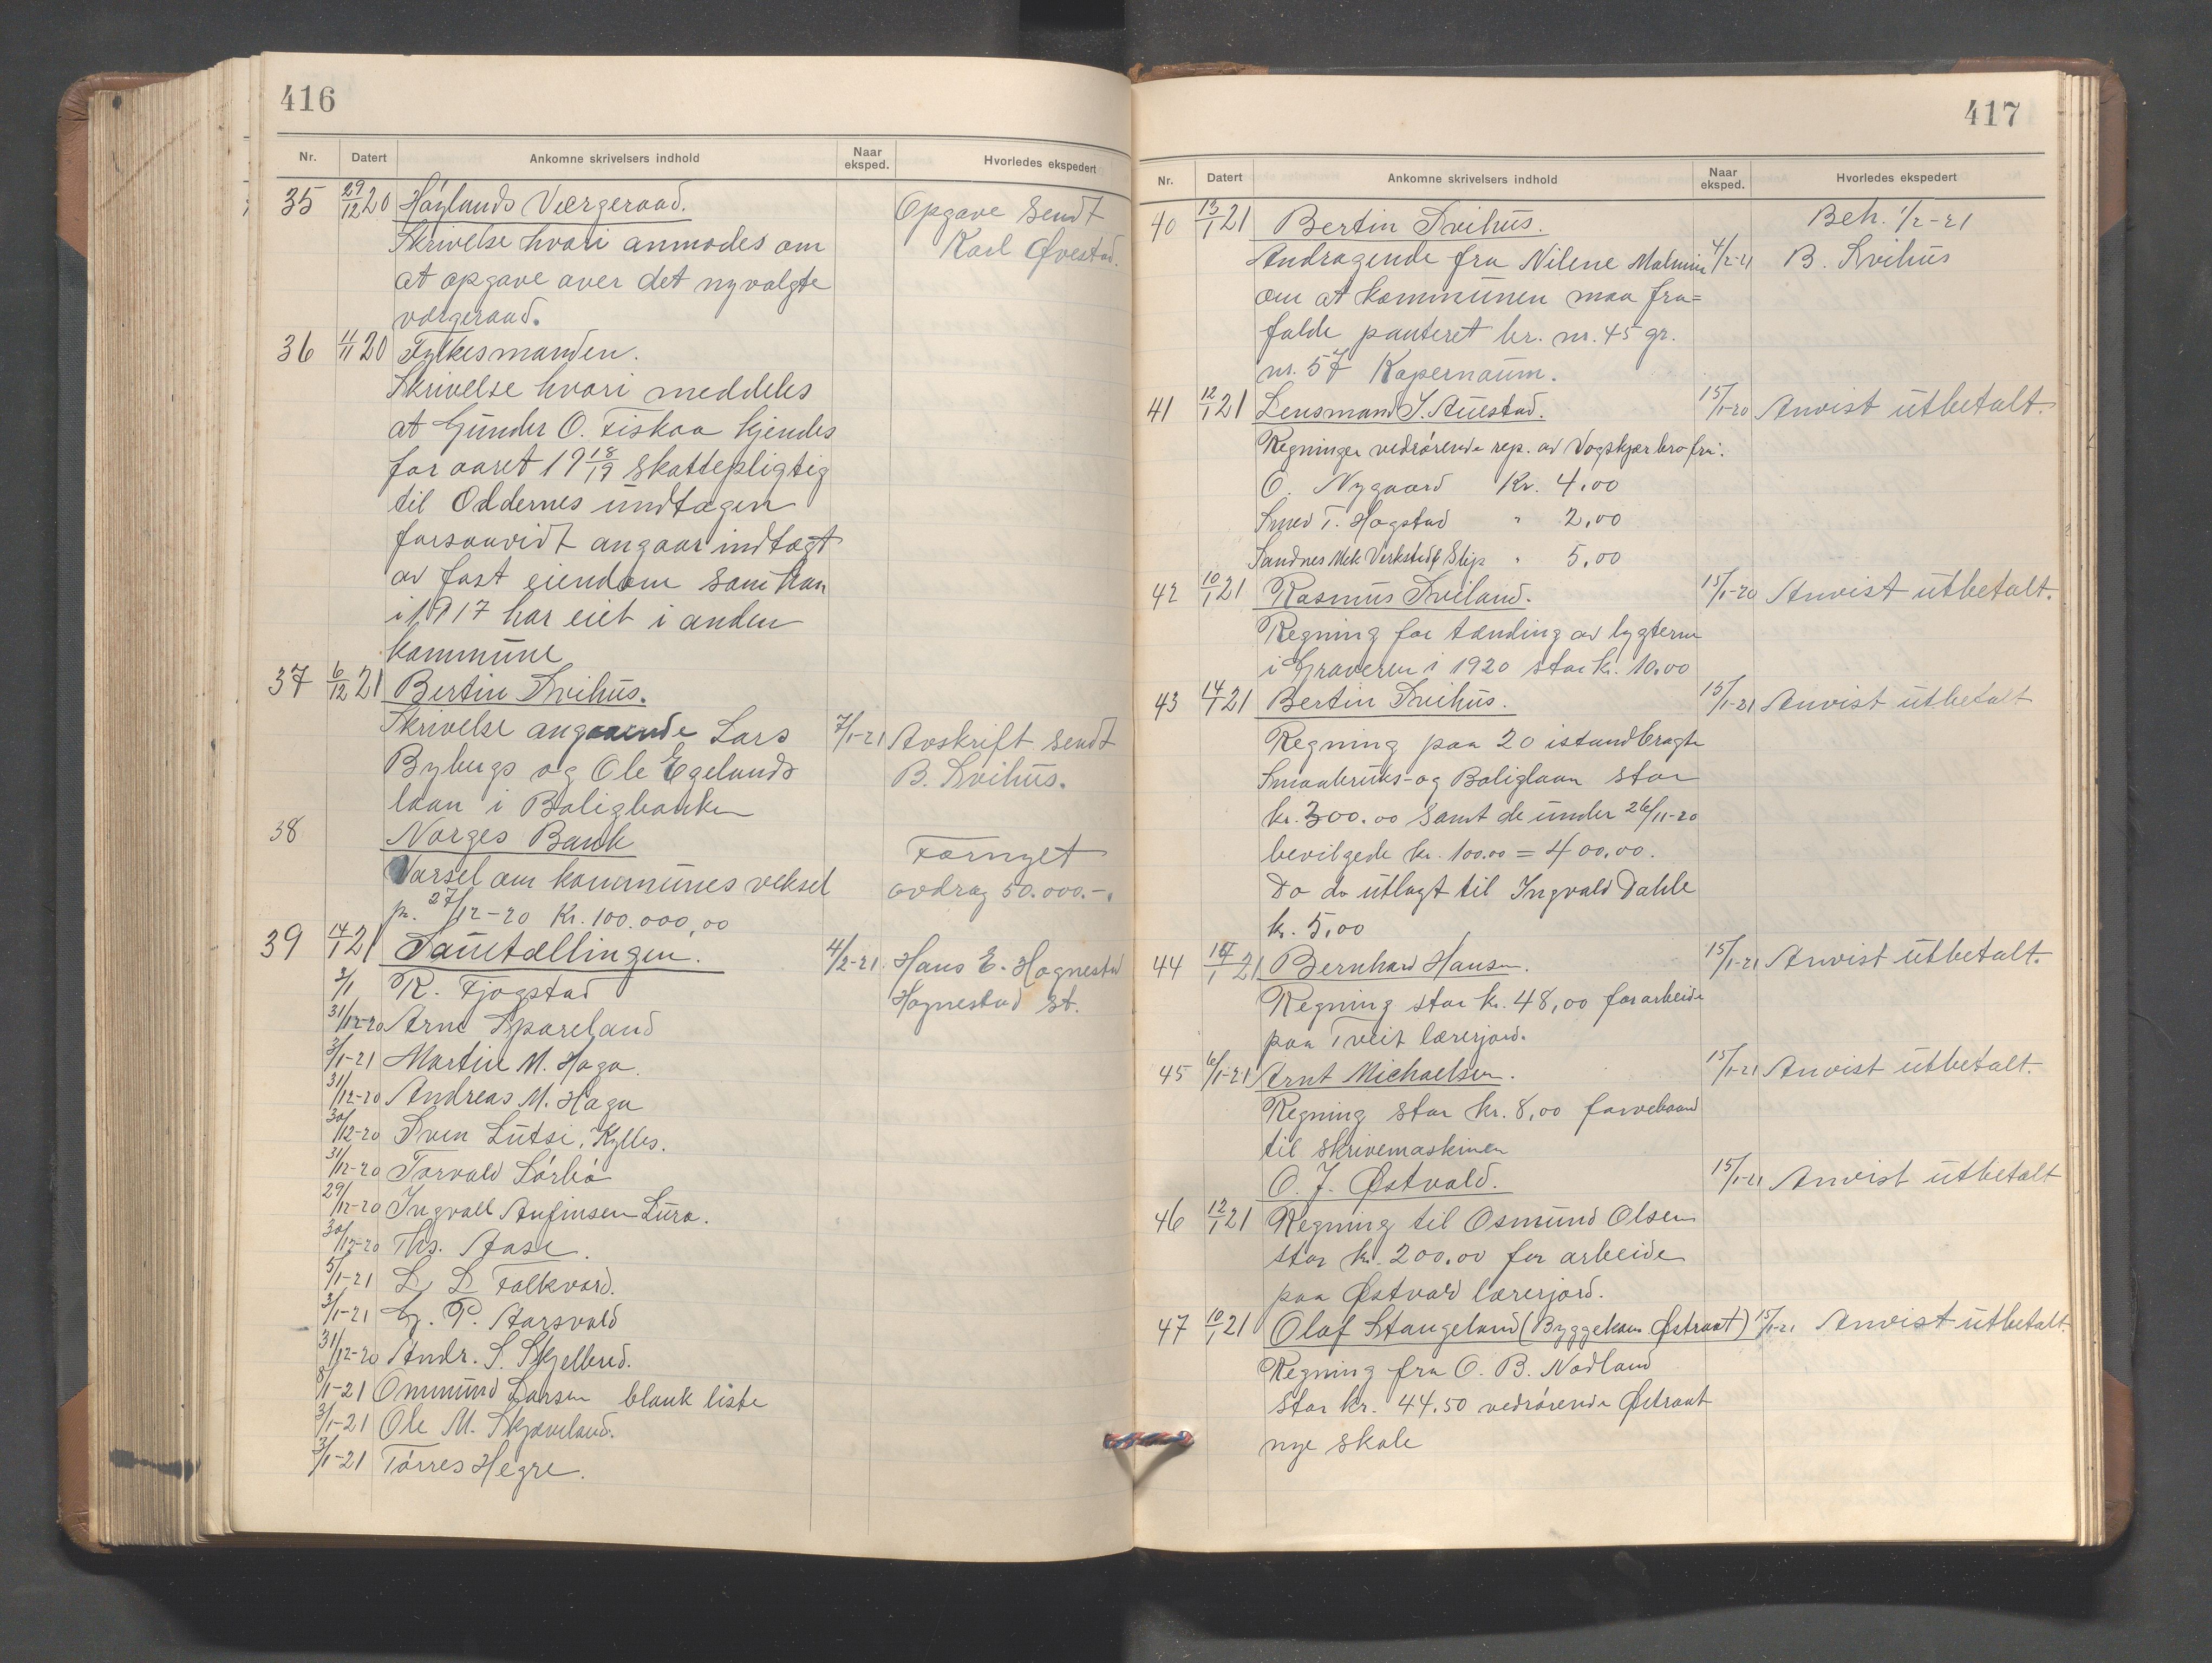 416
Nr. Datert Ankomne skrivelsers indhold Naar eksped. Hvorledes ekspedert
35 29/12 20 Høylands Værgeraad. Opgave sendt
Skrivelse hvori anmodes om Karl Øvestad.
at opgave over det nyvalgte
værgeraad.
36 11/11 20 Fylkesmanden.
Skrivelse hvori meddeles
at Gunder O. Fiskaa kjendes
for aaret 19 18/19 skattepligtig
til Oddernes undtagen
forsaavidt angaar indtægt
av fast eiendom som han
i 1917 har eiet i anden
kommune
37 6/12 21 Bertin Svihus.
Skrivelse angaaende Lars 7/1-21 Avskrift sendt
Bybergs og Ole Egelands B. Svihus.
laan i Boligbanken
38 Norges Bank Fornyet
Varsel om kommunes veksel avdrag 50.000.-.
pr. 27/12-20 Kr. 100.000,00
39 14/1 21 Sautællingen. 4/2-21. Hans E. Hognestad
3/1 R. Fjogstad Hognestad st.
31/12-20 Arne Spareland
3/1-21 Martin M. Haga.
31/12-20 Andreas M. Haga
30/12-20 Sven Lutsi, Kylles.
31/12-20 Torvald Sørbø
29/12-20 Ingvall Aufinsen Lura.
30/12-20 Ths. Aase.
5/1-21 L. L. Folkvord.
3/1-21 G. P. Aarsvold
31/12-20 Andr. S. Skjelbred.
8/1-21 Ommund Larsen blank liste
3/1-21 Ole M. Skjæveland.
3/1-21 Tørres Hegre.
417
Nr. Datert Ankomne skrivelsers indhold Naar eksped. Hvorledes ekspedert
40 13/1 21 Bertin Svihus. Beh. 1/2-21
Andragende fra Nilene Malmin 4/2-21 B. Svihus
om at kommunen maa fra=
falde panteret br. nr. 45 gr.
nr. 57 Kapernaum.
41 12/1 21 Lensmand S. Auestad. 15/1-20 Anvist utbetalt.
Regninger vedrørende rep. av Vogskjær bro fra:
O. Nygaard Kr. 4.00
Smed T. Hogstad " 2,00
Sandnes Mek Verksted & Slip " 5,00
42 10/1 21 Rasmus Sviland. 15/1-20 Anvist utbetalt.
Regning for tænding av lygterne
i Graveren i 1920 stor kr. 10.00
43 14/1 21 Bertin Svihus. 15/1-21 Anvist utbetalt
Regning paa 20 istandbragte
Smaabruks- og Boliglaan stor
kr. 300.00 samt de under 26/11-20
bevilgede kr. 100.00 = 400,00.
Do do utlagt til Ingvald Dahle
kr. 5,00
44 14/1 21 Bernhard Hansen. 15/1-21 Anvist utbetalt.
Regning stor kr. 48,00 for arbeide
paa Tveit lærerjord.
45 6/1-21 Arnt Michaelsen. 15/1-21 Anvist utbetalt.
Regning stor kr. 8,00 farvebaand
til skrivemaskinen
O. J. Østvold. 15/1-21 Anvist utbetalt
46 12/1 21 Regning til Osmund Olsen
stor kr. 200.00 for arbeide
paa Østvold lærerjord.
47 10/1 21 Olaf Stangeland (Byggekom Østraat) 15/1-21 Anvist utbetalt.
Regning fra O. B. Nodland
stor kr. 44.50 vedrørende Østraat
nye skole